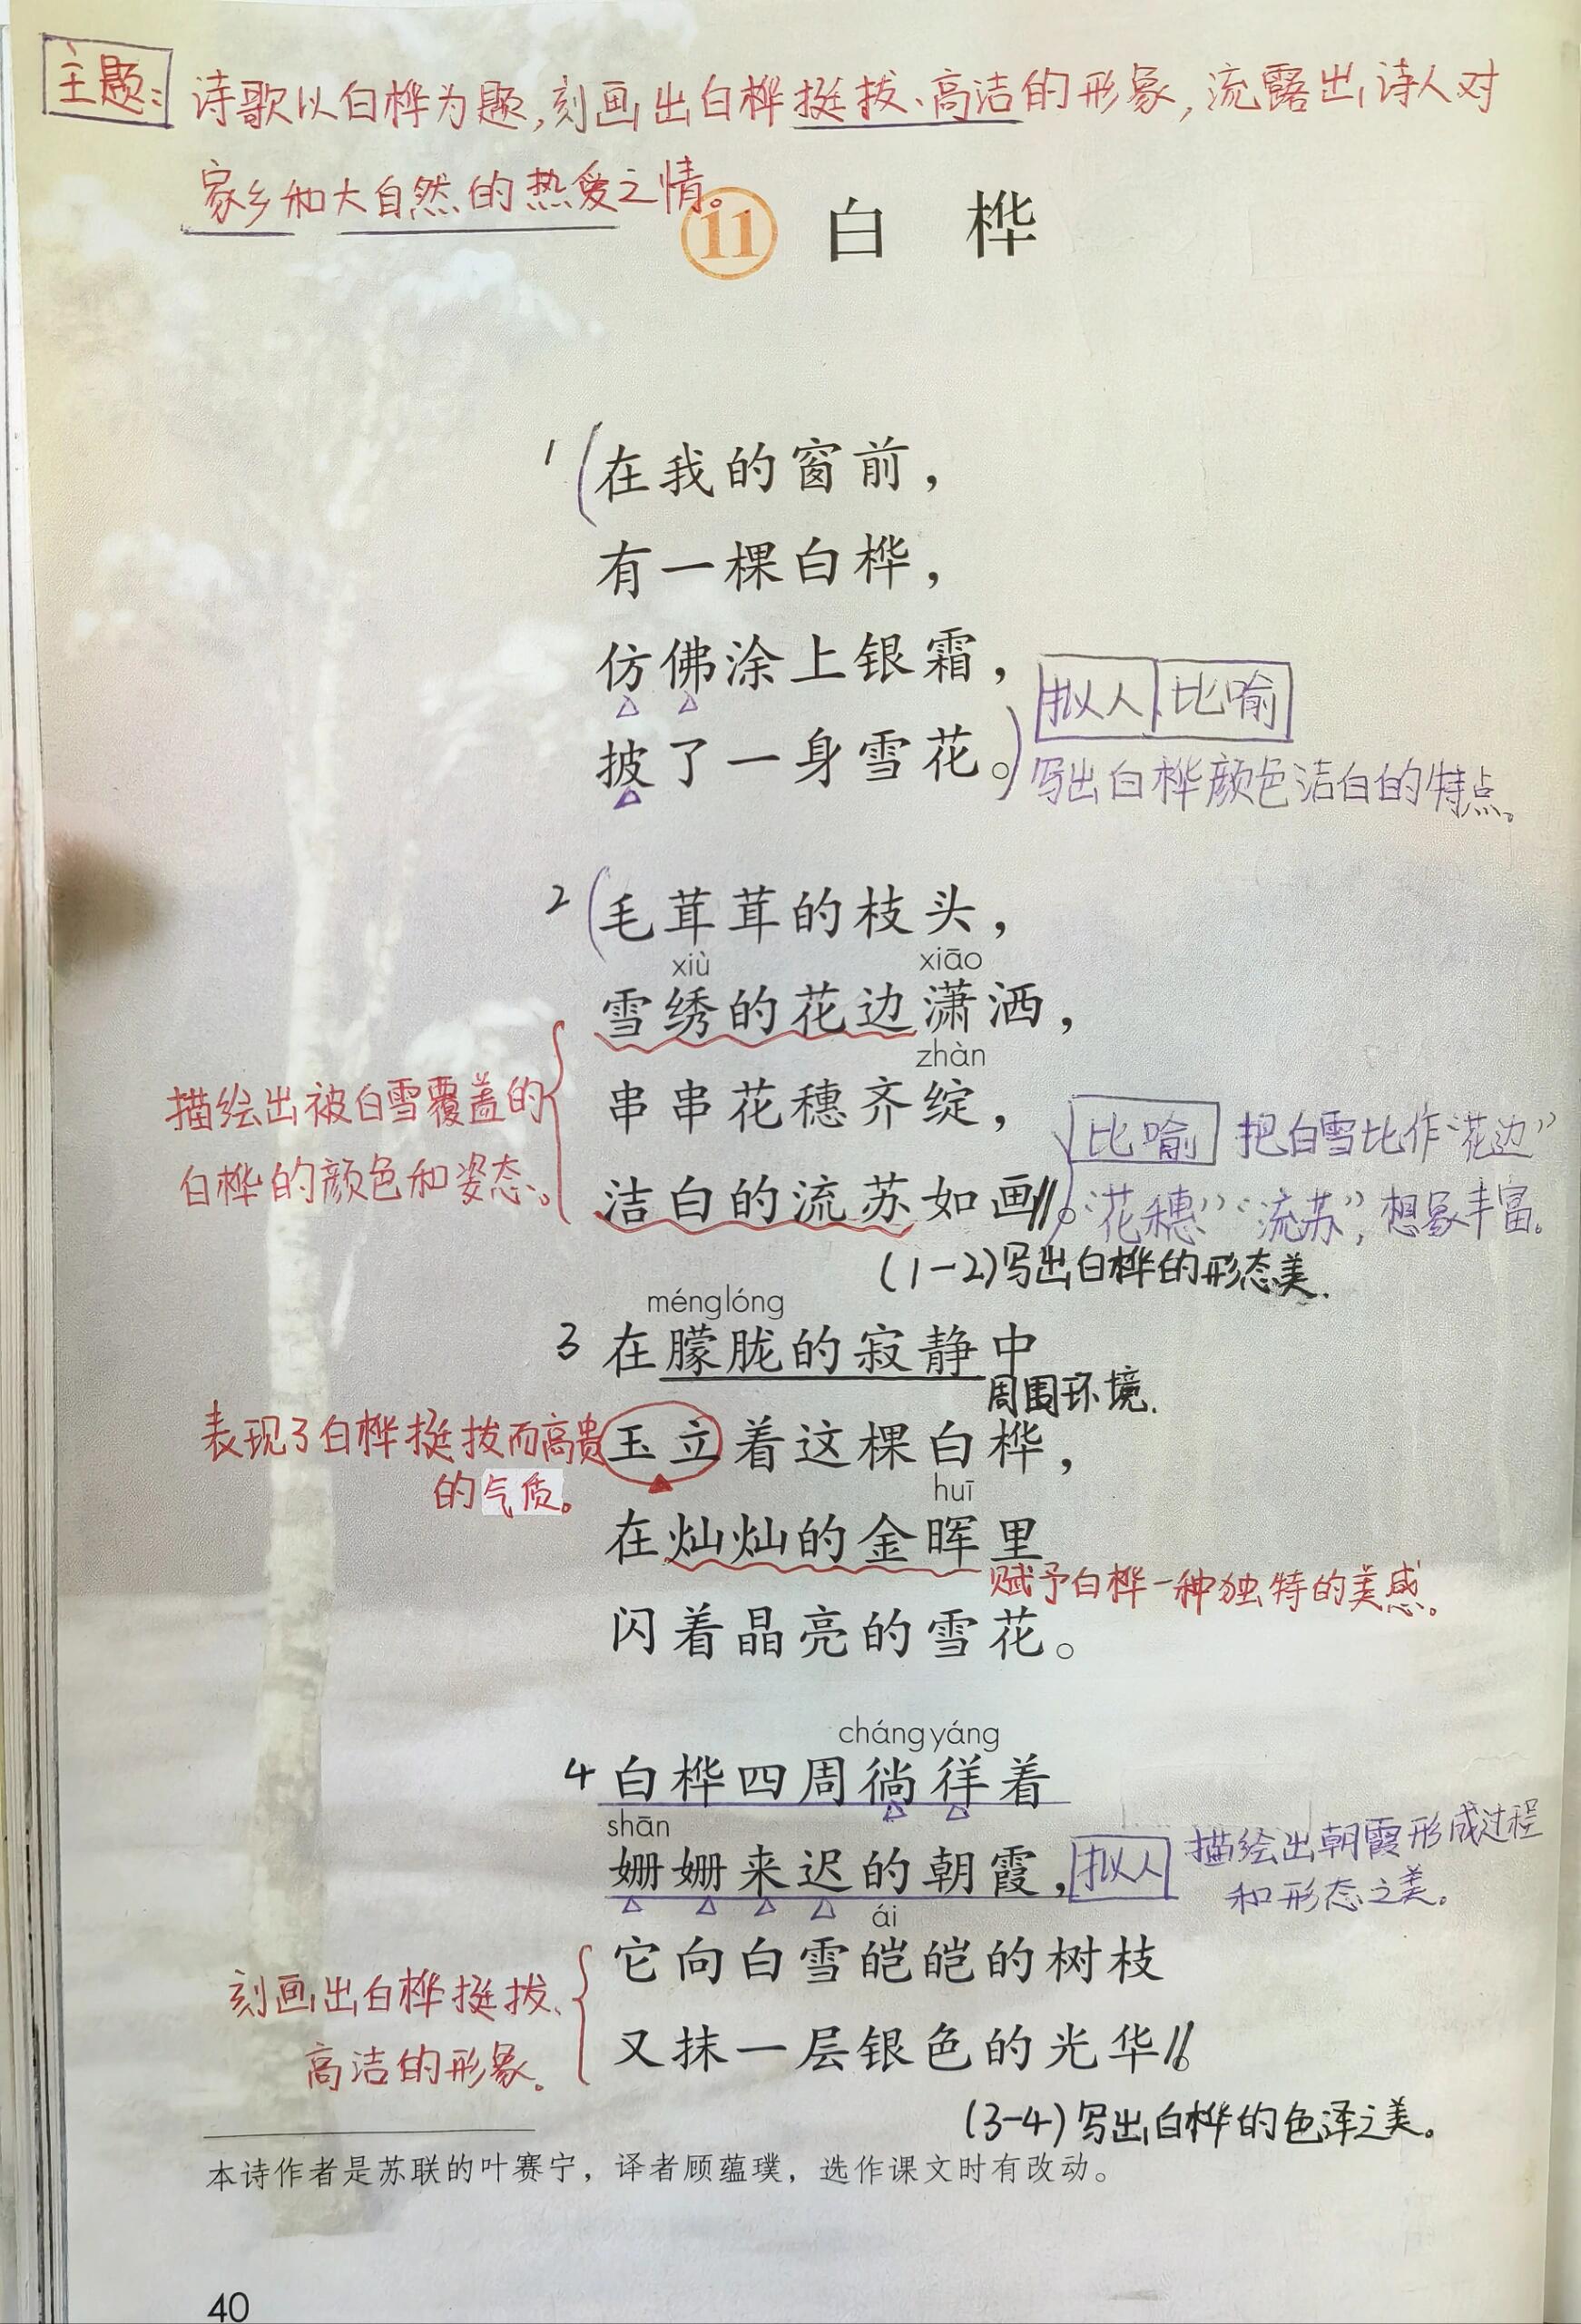 主题：诗歌以白桦为题,刻画出白桦挺拔、高洁的形象,流露出诗人对
家乡和大自然的热爱之情。
11 白桦
1 在我的窗前，
有一棵白桦，
仿佛涂上银霜，
拟人 比喻
披了一身雪花。
写出白桦颜色洁白的特点。
2 毛茸茸的枝头，
xiù xiāo
雪绣的花边潇洒，
zhàn
串串花穗齐绽，
描绘出被白雪覆盖的
白桦的颜色和姿态。
比喻 把白雪比作“花边”
洁白的流苏如画。
“花穗”“流苏”,想象丰富。
(1-2)写出白桦的形态美.
ménglóng
3 在朦胧的寂静中
周围环境.
表现了白桦挺拔而高贵
的气质。
玉立着这棵白桦，
huī
在灿灿的金晖里
赋予白桦一种独特的美感。
闪着晶亮的雪花。
chángyáng
4 白桦四周徜徉着
shān
姗姗来迟的朝霞，
拟人 描绘出朝霞形成过程
和形态之美。
ái
它向白雪皑皑的树枝
刻画出白桦挺拔、
高洁的形象。
又抹一层银色的光华。
(3-4)写出白桦的色泽之美。
本诗作者是苏联的叶赛宁，译者顾蕴璞，选作课文时有改动。
40